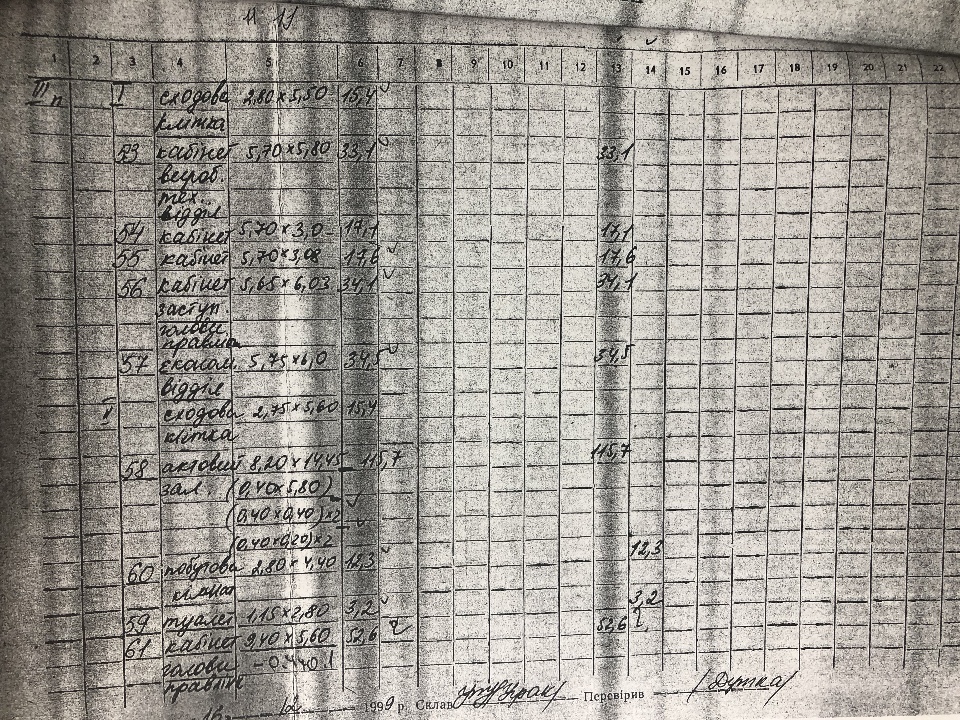 1 2 3 4 5 6 7 8 9 10 11 12 13 14 15 16 17 18 19 20 21 22
III п I сходова 2,80×5,50 15,4
клітка
53 кабінет 5,70×5,80 33,1 33,1
вироб.
тех.
відділ
54 кабінет 5,70×3,0 17,1 17,1
55 кабінет 5,70×3,08 17,6 17,6
56 кабінет 5,65×6,03 34,1 34,1
заступ.
голови
правлін
57 економ. 5,75×6,0 34,5 34,5
відділ
II сходова 2,75×5,60 15,4
клітка
58 актовий 8,20×14,45 115,7 115,7
зал. (0,40×5,80)
(0,40×0,40)×2
(0,40×0,20)×2
60 побутова 2,80×4,40 12,3 12,3
кімнат
59 туалет 1,15×2,80 3,2 3,2
61 кабінет 9,40×5,60 52,6 52,6
голови
правлін
16 12 1999 р. Склав Перевірив